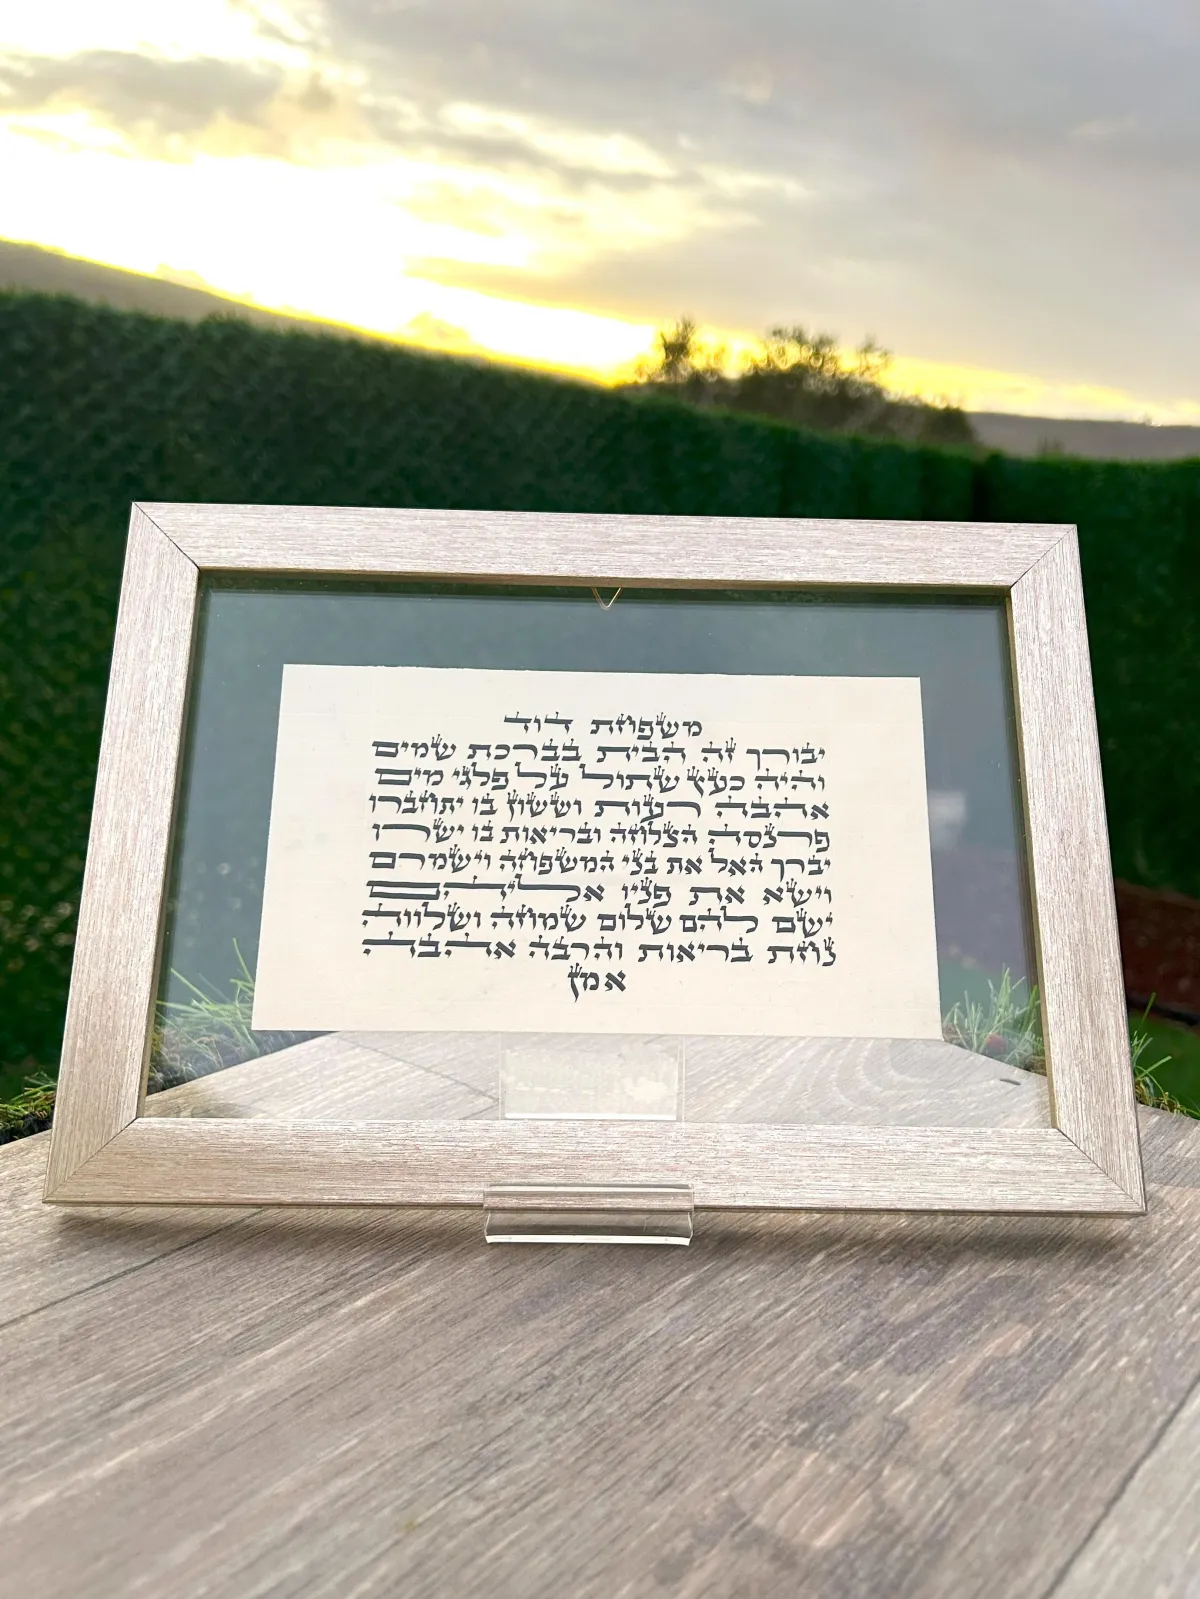 משפחת דוד
יבורך זה הבית בברכת שמים
והיה כעץ שתול על פלגי מים
אהבה רעות וששון בו יתחברו
פרנסה הצלחה ובריאות בו ישרו
יברך האל את בני המשפחה וישמרם
וישא את פניו אליהם
ישים להם שלום שמחה ושלווה
נחת בריאות והרבה אהבה
אמן